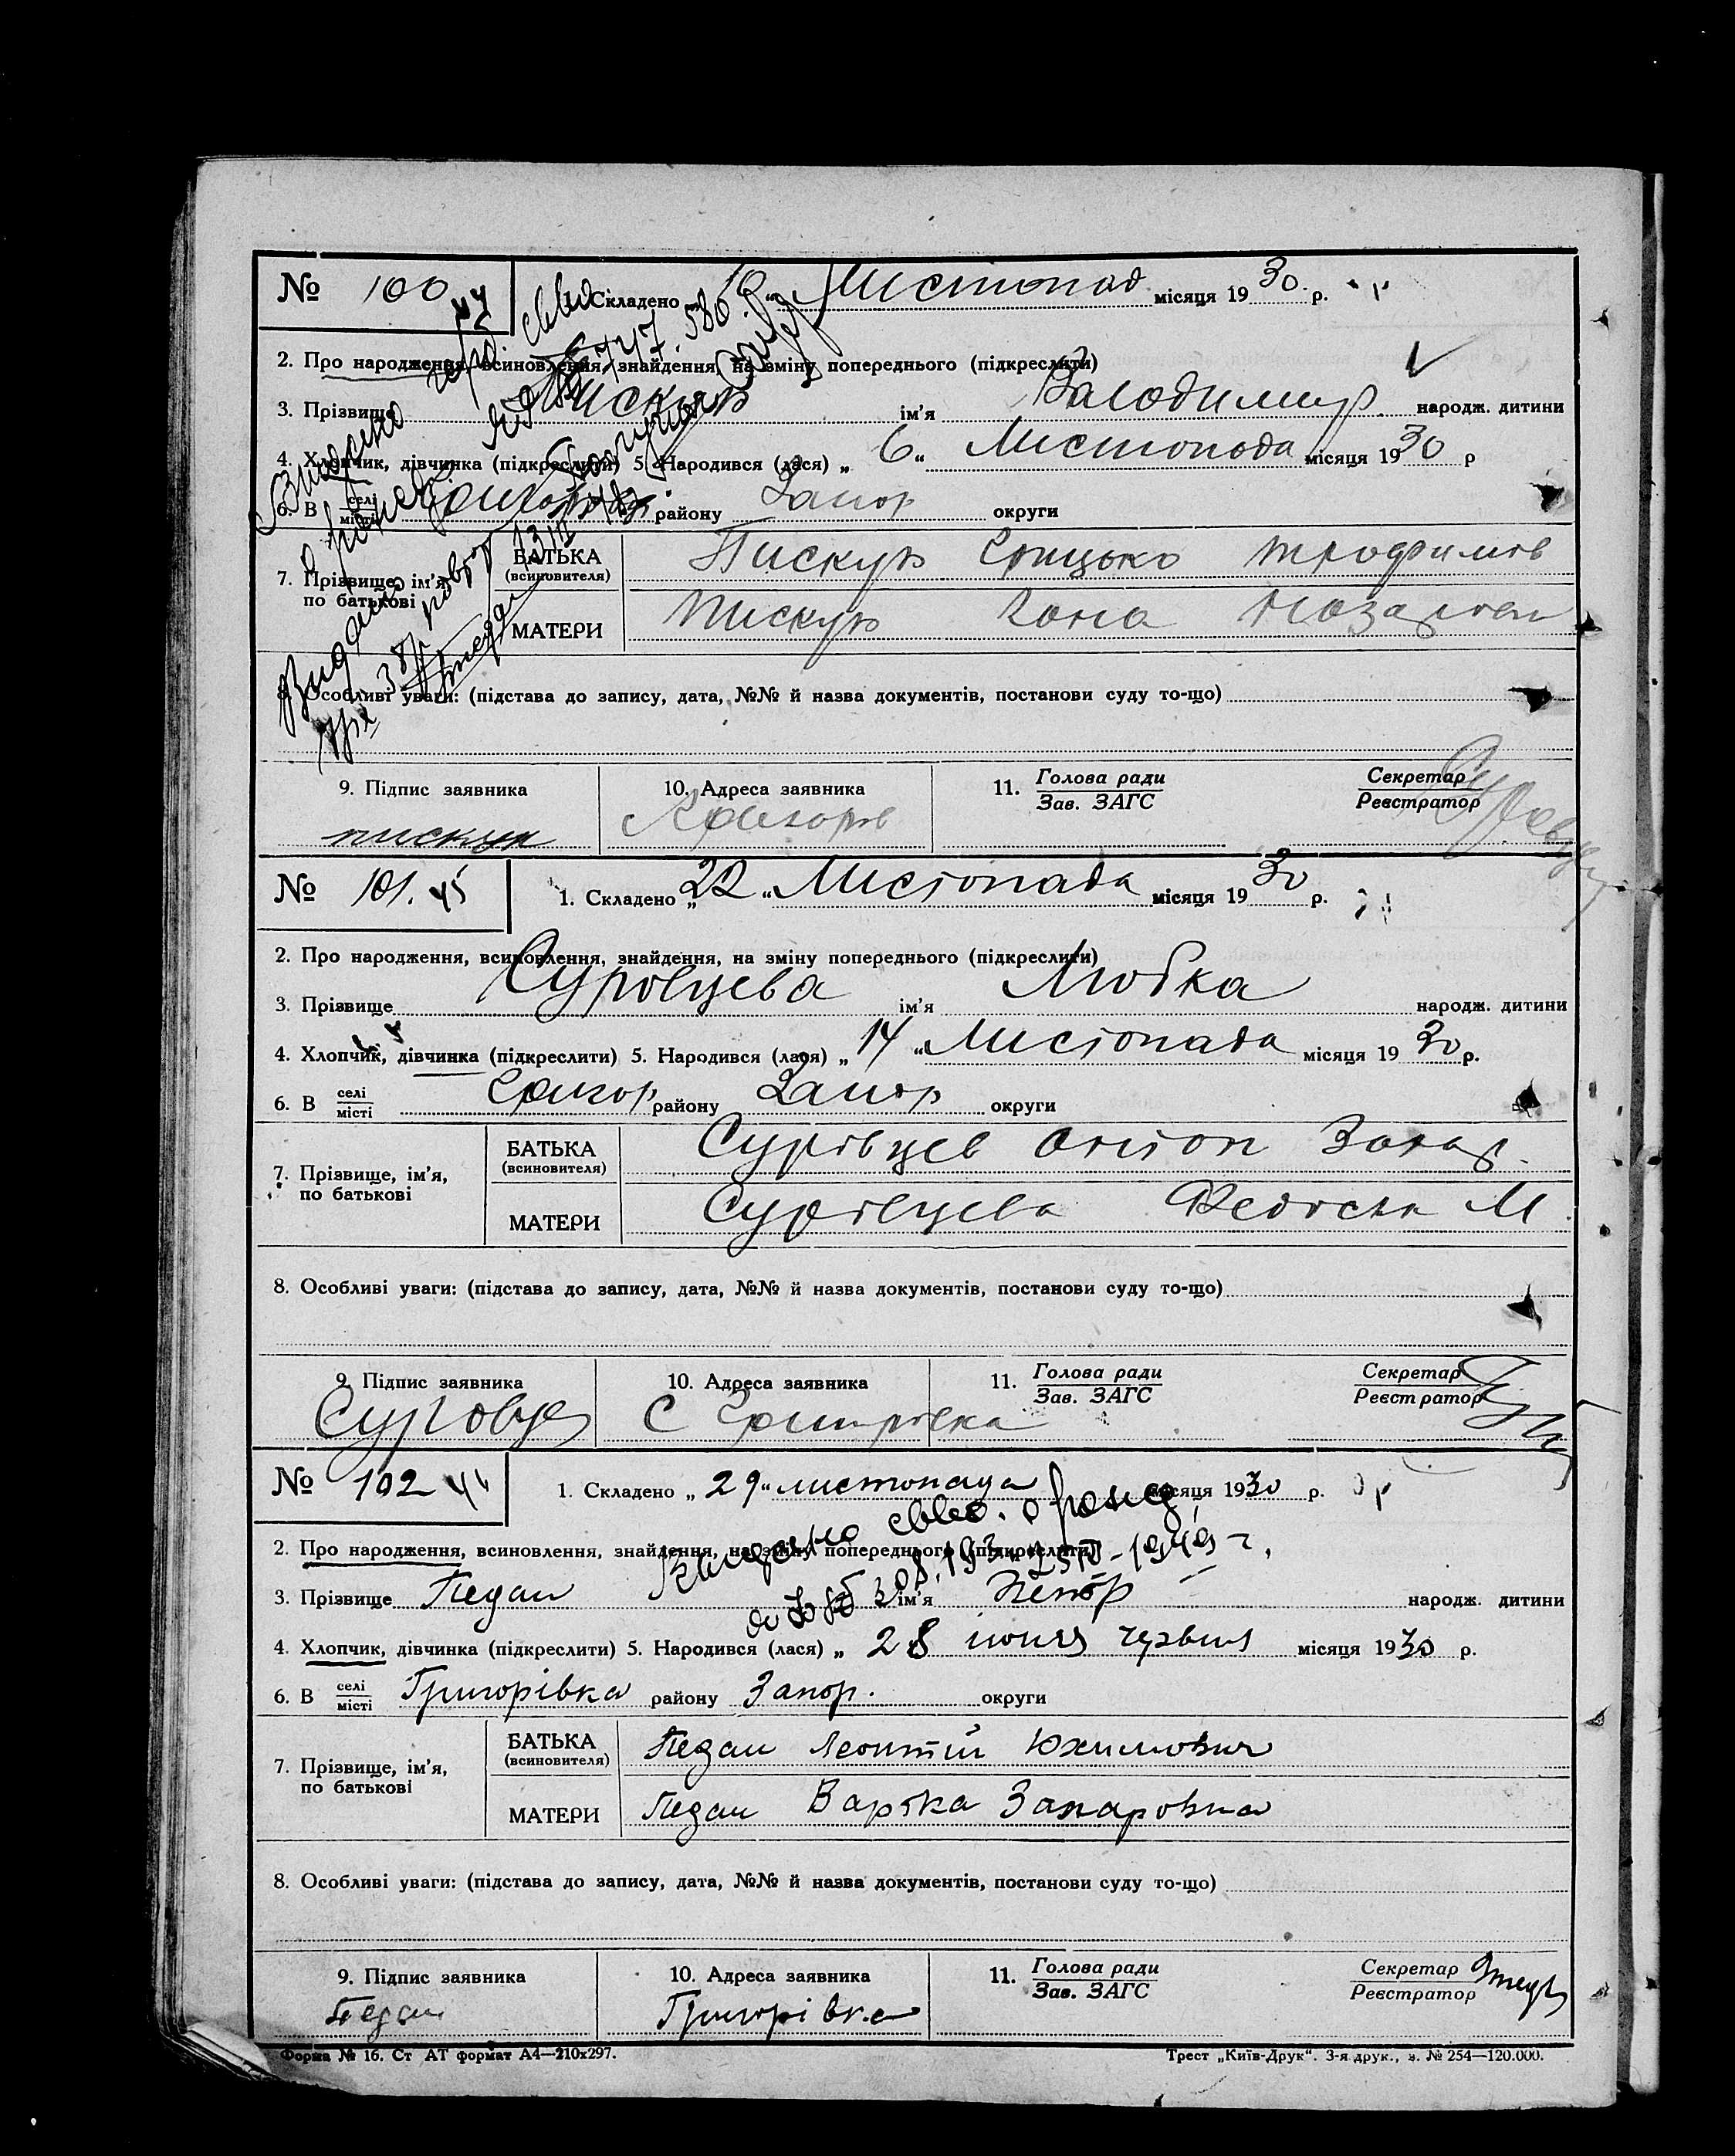 № 100 44
1. Складено „10“ Листопад місяця 1930 р.
2. Про народження, всиновлення, знайдення, на зміну попереднього (підкреслити)
3. Прізвище Пискун ім'я Володимир народж. дитини
4. Хлопчик, дівчинка (підкреслити) 5. Народився (лася) „6“ Листопода місяця 1930 р
6. В селі/місті району Запор округи
7. Прізвище, ім'я, по батькові
БАТЬКА (всиновителя) Пискун Грицько Трофимов
МАТЕРИ Пискун
8. Особливі уваги: (підстава до запису, дата, №№ й назва документів, постанови суду то-що)
9. Підпис заявника 10. Адреса заявника 11. Голова ради Секретар
Зав. ЗАГС Реєстратор
пискун
№ 101. 45
1. Складено „22“ Листопада місяця 1930 р.
2. Про народження, всиновлення, знайдення, на зміну попереднього (підкреслити)
3. Прізвище Суровцева ім'я Любка народж. дитини
4. Хлопчик, дівчинка (підкреслити) 5. Народився (лася) „14“ Листопада місяця 1930 р.
6. В селі/місті Григор району Запор округи
7. Прізвище, ім'я, по батькові
БАТЬКА (всиновителя) Суровцев Антон Захар.
МАТЕРИ Суровцева Федоска М
8. Особливі уваги: (підстава до запису, дата, №№ й назва документів, постанови суду то-що)
9. Підпис заявника 10. Адреса заявника 11. Голова ради Секретар
Зав. ЗАГС Реєстратор
Суровце С Григорівка
№ 102 46
1. Складено „29“ листопада місяця 1930 р.
2. Про народження, всиновлення, знайдення, на зміну попереднього (підкреслити)
3. Прізвище Педан ім'я Петр народж. дитини
4. Хлопчик, дівчинка (підкреслити) 5. Народився (лася) „28 июня червня місяця 1930 р.
6. В селі/місті Григорівка району Запор. округи
7. Прізвище, ім'я, по батькові
БАТЬКА (всиновителя) Педан Леонтій Юхимович
МАТЕРИ Педан Варька Захаровна
8. Особливі уваги: (підстава до запису, дата, №№ й назва документів, постанови суду то-що)
9. Підпис заявника 10. Адреса заявника 11. Голова ради Секретар
Зав. ЗАГС Реєстратор
Педан Григорівка
Форма № 16. Ст АТ формат А4—210х297.
Трест „Київ-Друк“. 3-я друк., з. № 254—120.000.